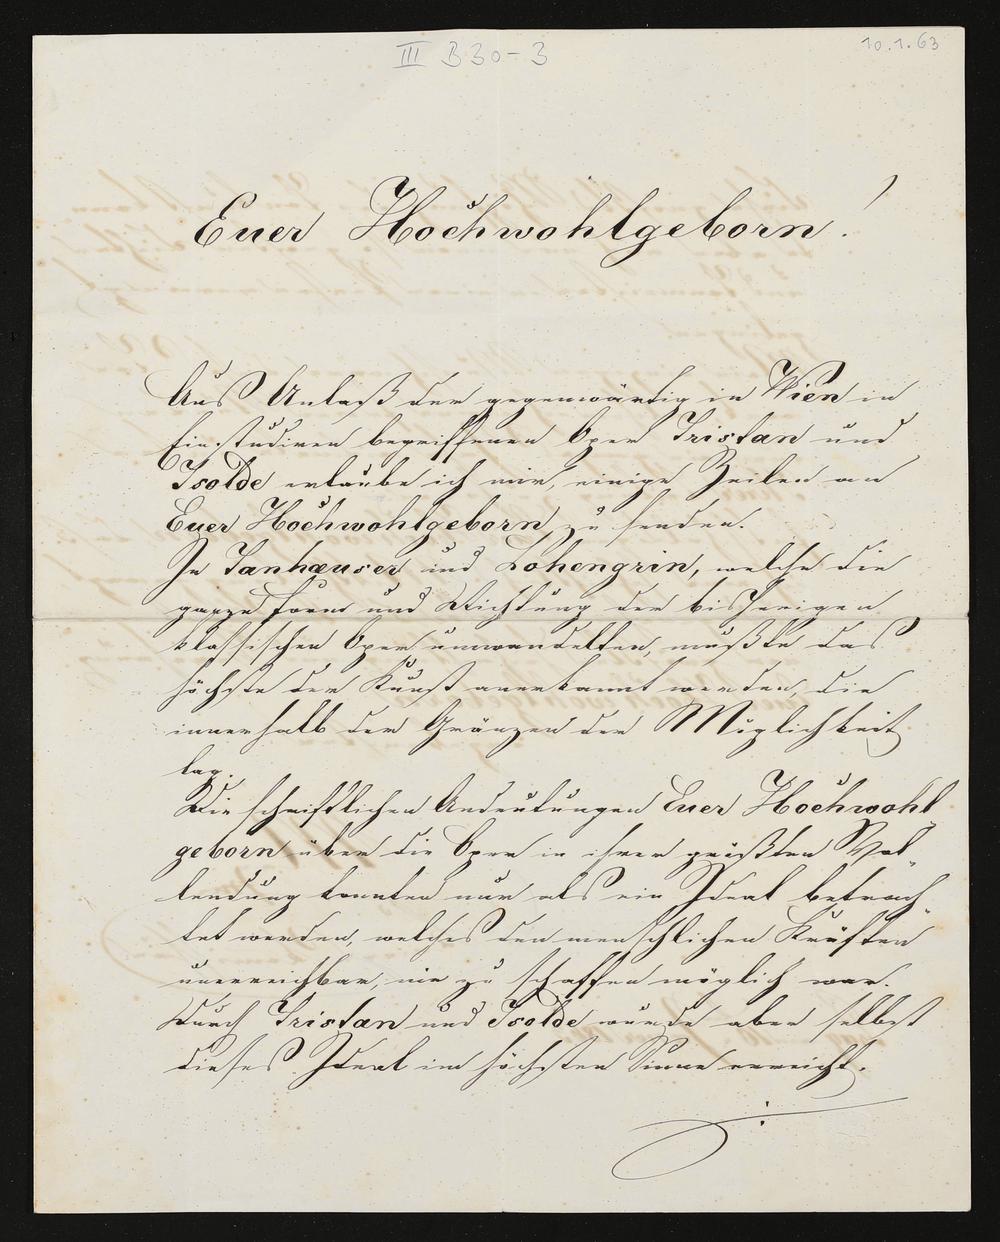 III B30-3
10.1.63
Euer Hochwohlgeborn!
Aus Anlaß der gegenwärtig in Wien in
Einstudiren begriffenen Oper Tristan und
Isolde erlaube ich mir, einige Zeilen an
Euer Hochwohlgeborn zu senden.
In Tanhæuser und Lohengrin, welche die
ganze Form und Richtung der bisherigen
klassischen Oper umwandelten, mußte das
höchste der Kunst anerkannt werden, die
innerhalb der Gränzen der Möglichkeit
lag.
Die schriftlichen Andeutungen Euer Hochwohl
geborn über die Oper in ihrer größten Vol-
lendung konnten nur als ein Ideal betrach-
tet werden, welches den menschlichen Kräften
unerreichbar, nie zu schaffen möglich war.
Durch Tristan und Isolde wurde aber selbst
dieses Ideal im höchsten Sinne erreicht.